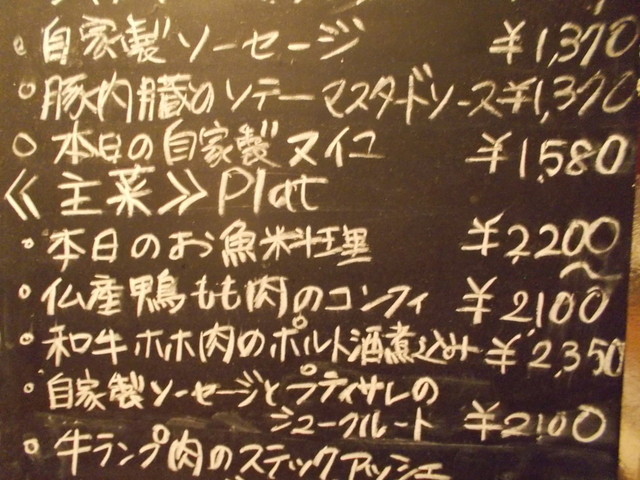 ○ 自家製ソーセージ ¥1,370
○ 豚内臓のソテーマスタードソース ¥1,370
○ 本日の自家製ヌイユ ¥1,580
《主菜》Plat
○ 本日のお魚料理 ¥2,200〜
○ 仏産鴨もも肉のコンフィ ¥2100
○ 和牛ホホ肉のポルト酒煮込み ¥2,350
○ 自家製ソーセージとプティサレの
シュークルート ¥2100
○ 牛ランプ肉のステックアッシェ